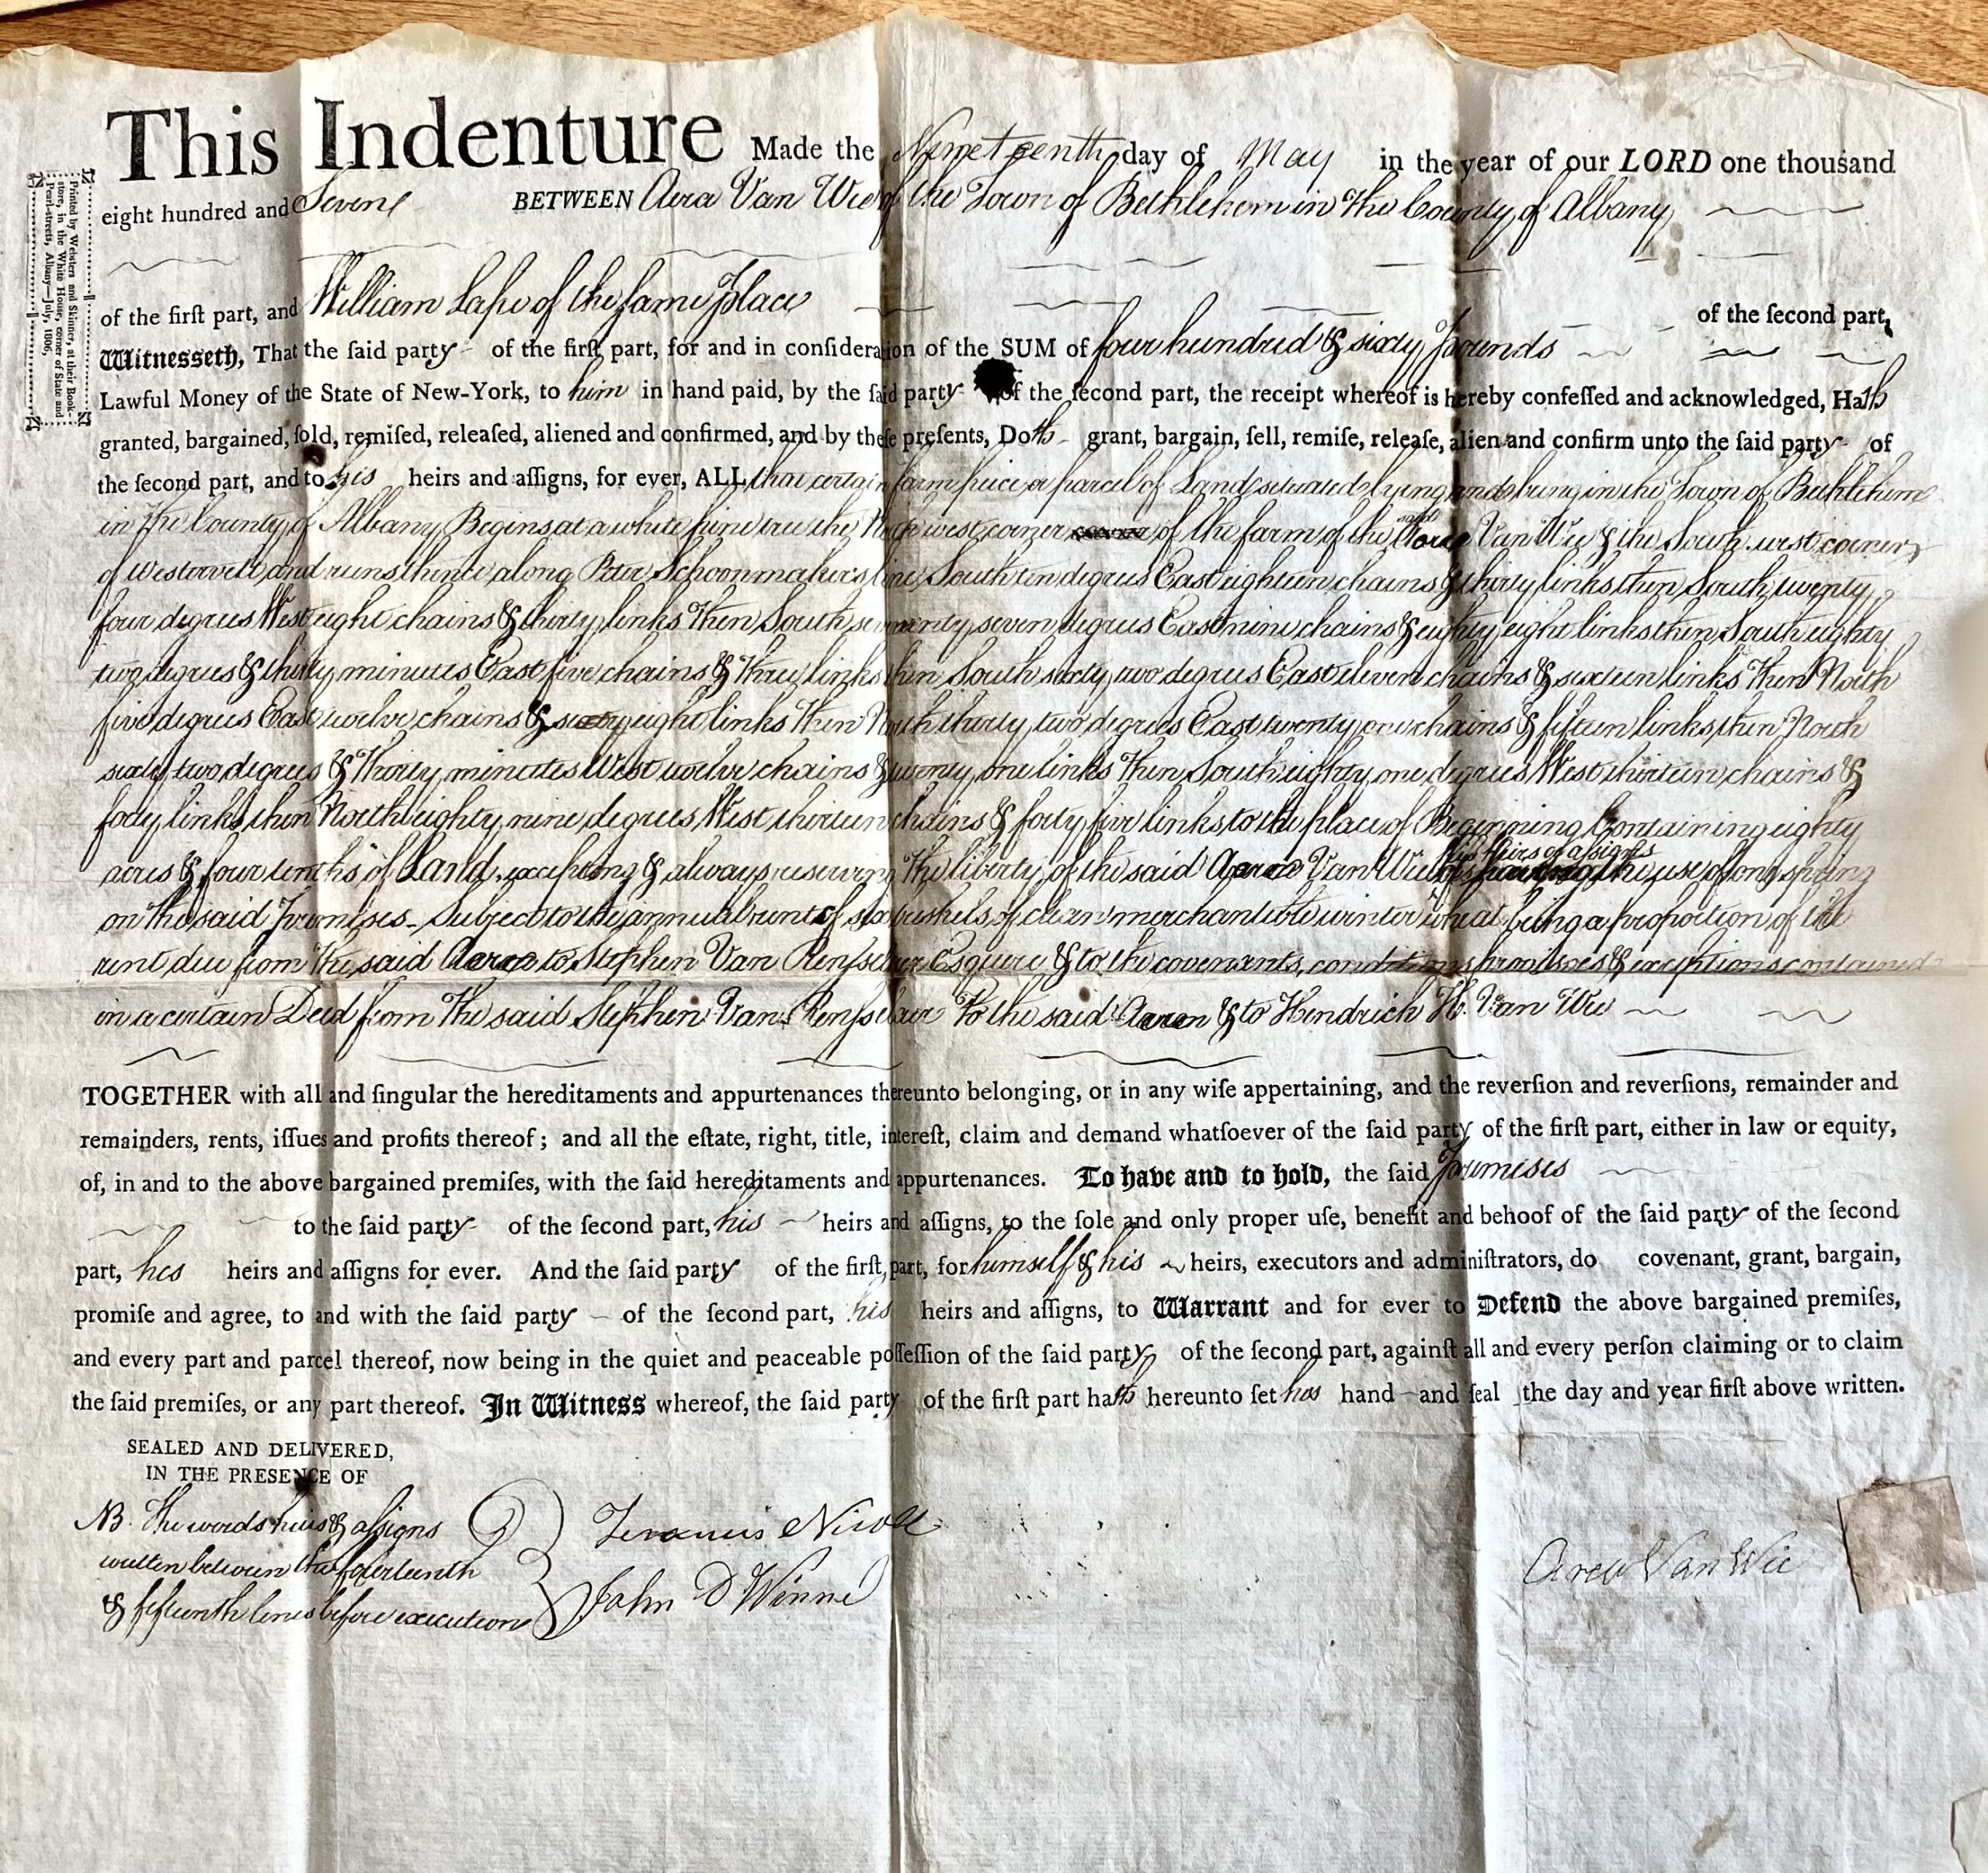 This Indenture Made the Nineteenth day of May in the year of our LORD one thousand
eight hundred and Seven BETWEEN Aera Van Wie of the Town of Bethlehem in the County of Albany
of the firſt part, and William Lape of the same place of the ſecond part,
Witneſſeth, That the ſaid party of the firſt part, for and in conſideration of the SUM of four hundred & sixty Pounds
Lawful Money of the State of New-York, to him in hand paid, by the ſaid party of the ſecond part, the receipt whereof is hereby confeſſed and acknowledged, Hath
granted, bargained, ſold, remiſed, releaſed, aliened and confirmed, and by theſe preſents, Doth grant, bargain, ſell, remiſe, releaſe, alien and confirm unto the ſaid party of
the ſecond part, and to his heirs and aſſigns, for ever, ALL that certain farm piece or parcel of Land situated lying and being in the Town of Bethlehem
in the County of Albany Begins at a white pine tree the North west corner of the farm of the said Van Wie & the South west corner
of Westervelt and runs thence along Peter Schoonmakers line South ten degrees East eighteen chains & thirty links then South twenty
four degrees West eight chains & thirty links Then South seventy seven degrees East nine chains & eighty eight links then South eighty
two degrees & thirty minutes East five chains & three links then South sixty two degrees East eleven chains & sixteen links Then North
five degrees East twelve chains & eight links Then North thirty two degrees East twenty one chains & fifteen links then North
sixty two degrees & Thirty minutes West twelve chains & twenty one links Then South eighty one degrees West thirteen chains &
forty links then North eighty nine degrees West thirteen chains & forty five links to the place of Beginning Containing eighty
acres & four tenths of Land, excepting & always reserving the liberty of the said Van Wie his heirs or assigns the use of one spring
on the said Premises - Subject to the annual rent of six bushels of clean merchantible winter wheat being a proportion of the
rent due from the said to Stephen Van Renſselaer Esquire & to the covenants, conditions provisoes & exceptions contained
in a certain Deed from the said Stephen Van Renſselaer to the said & to Hendrich H. Van Wie
TOGETHER with all and ſingular the hereditaments and appurtenances thereunto belonging, or in any wiſe appertaining, and the reverſion and reverſions, remainder and
remainders, rents, iſſues and profits thereof; and all the eſtate, right, title, intereſt, claim and demand whatſoever of the ſaid party of the firſt part, either in law or equity,
of, in and to the above bargained premiſes, with the ſaid hereditaments and appurtenances. To have and to hold, the ſaid Premises
to the ſaid party of the ſecond part, his heirs and aſſigns, to the ſole and only proper uſe, benefit and behoof of the ſaid party of the ſecond
part, his heirs and aſſigns for ever. And the ſaid party of the firſt part, for himself & his heirs, executors and adminiſtrators, do covenant, grant, bargain,
promiſe and agree, to and with the ſaid party of the ſecond part, his heirs and aſſigns, to Warrant and for ever to Defend the above bargained premiſes,
and every part and parcel thereof, now being in the quiet and peaceable poſſeſſion of the ſaid party of the ſecond part, againſt all and every perſon claiming or to claim
the ſaid premiſes, or any part thereof. In Witneſs whereof, the ſaid party of the firſt part hath hereunto ſet his hand and ſeal the day and year firſt above written.
SEALED AND DELIVERED,
IN THE PRESENCE OF
NB. The words heirs & aſsigns
written between the fourteenth
& fifteenth lines before execution
Francis Nicoll
John D Winne
Van Wie
Printed by Websters and Skinner, at their Book-
store, in the White House, corner of State and
Pearl-streets, Albany—July, 1806.